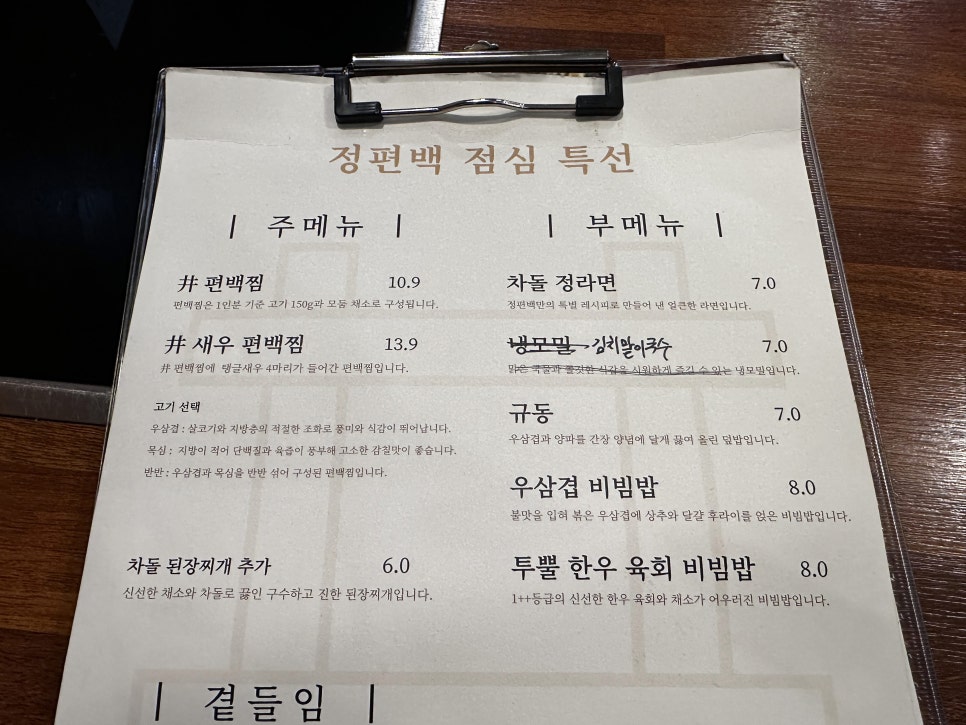 정편백 점심 특선
| 주메뉴 |
井 편백찜 10.9
편백찜은 1인분 기준 고기 150g과 모둠 채소로 구성됩니다.
井 새우 편백찜 13.9
井 편백찜에 탱글새우 4마리가 들어간 편백찜입니다.
고기 선택
우삼겹 : 살코기와 지방층의 적절한 조화로 풍미와 식감이 뛰어납니다.
목심 : 지방이 적어 단백질과 육즙이 풍부해 고소한 감칠맛이 좋습니다.
반반 : 우삼겹과 목심을 반반 섞어 구성된 편백찜입니다.
차돌 된장찌개 추가 6.0
신선한 채소와 차돌로 끓인 구수하고 진한 된장찌개입니다.
| 부메뉴 |
차돌 정라면 7.0
정편백만의 특별 레시피로 만들어 낸 얼큰한 라면입니다.
냉모밀 → 김치말이국수 7.0
맑은 국물과 쫄깃한 식감을 시원하게 즐길 수 있는 냉모밀입니다.
규동 7.0
우삼겹과 양파를 간장 양념에 달게 끓여 올린 덮밥입니다.
우삼겹 비빔밥 8.0
불맛을 입혀 볶은 우삼겹에 상추와 달걀 후라이를 얹은 비빔밥입니다.
투뿔 한우 육회 비빔밥 8.0
1++등급의 신선한 한우 육회와 채소가 어우러진 비빔밥입니다.
| 곁들임 |